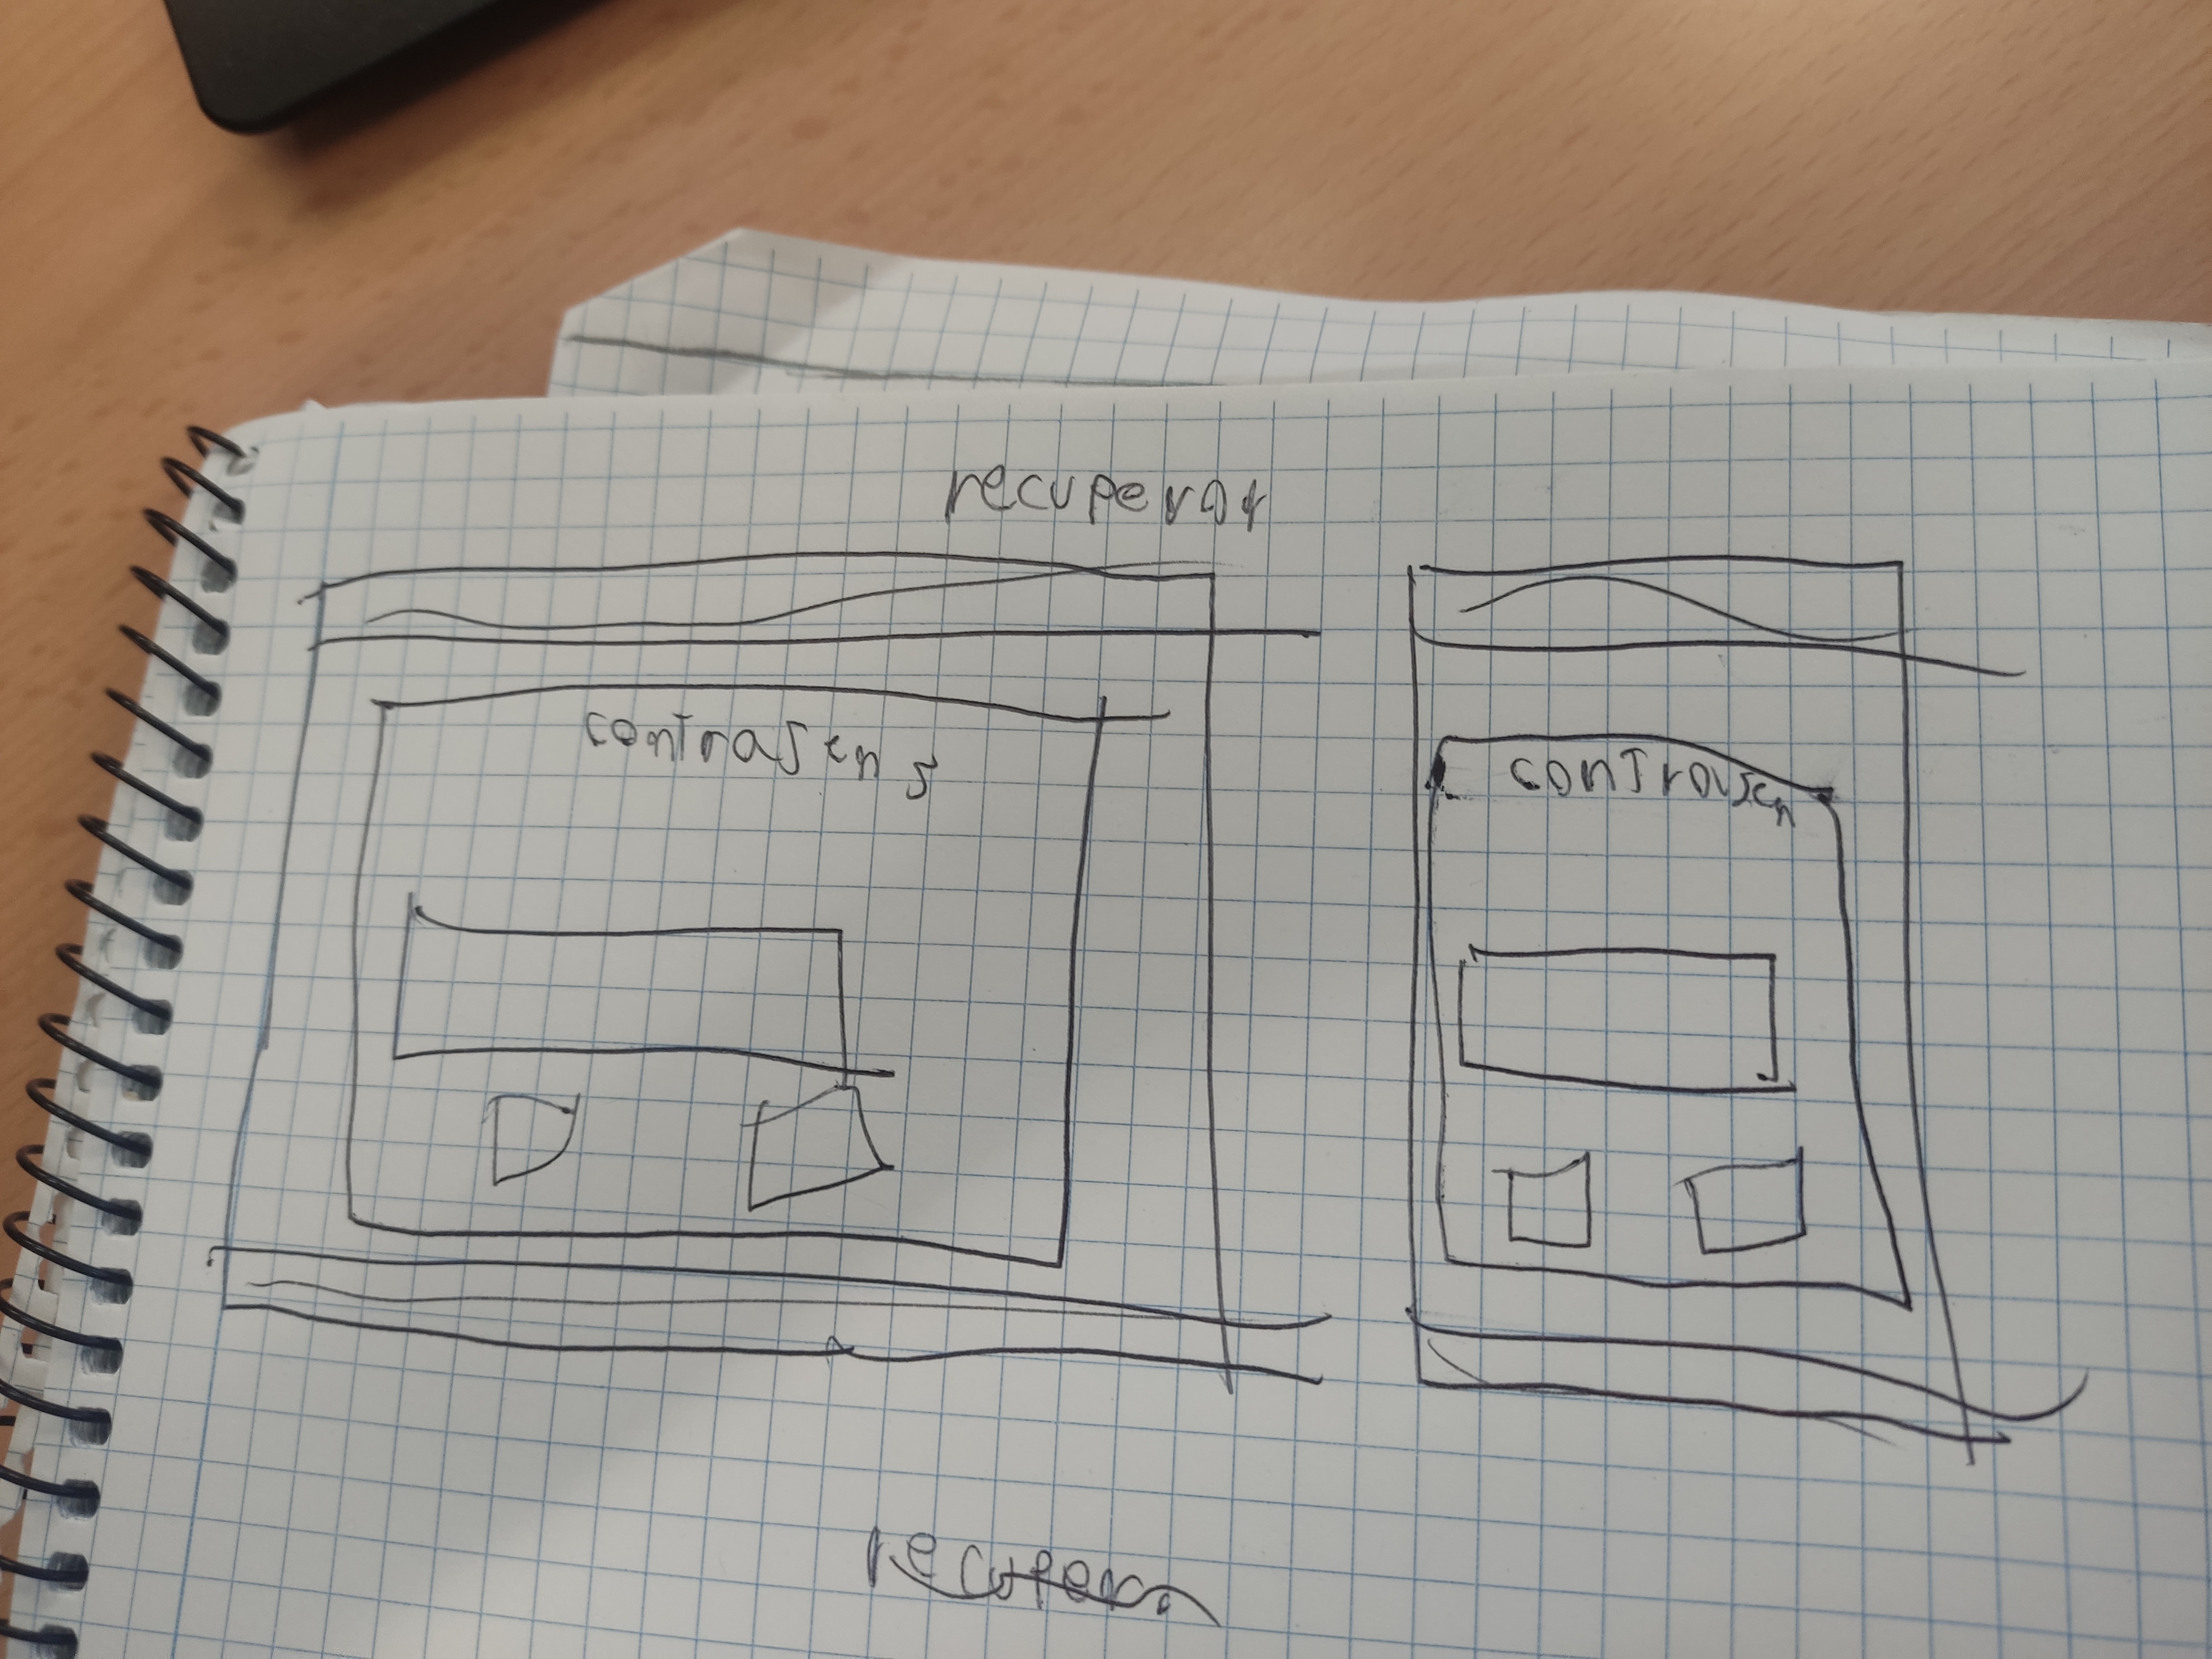 recuperar
contrasen
contrasen
recupera